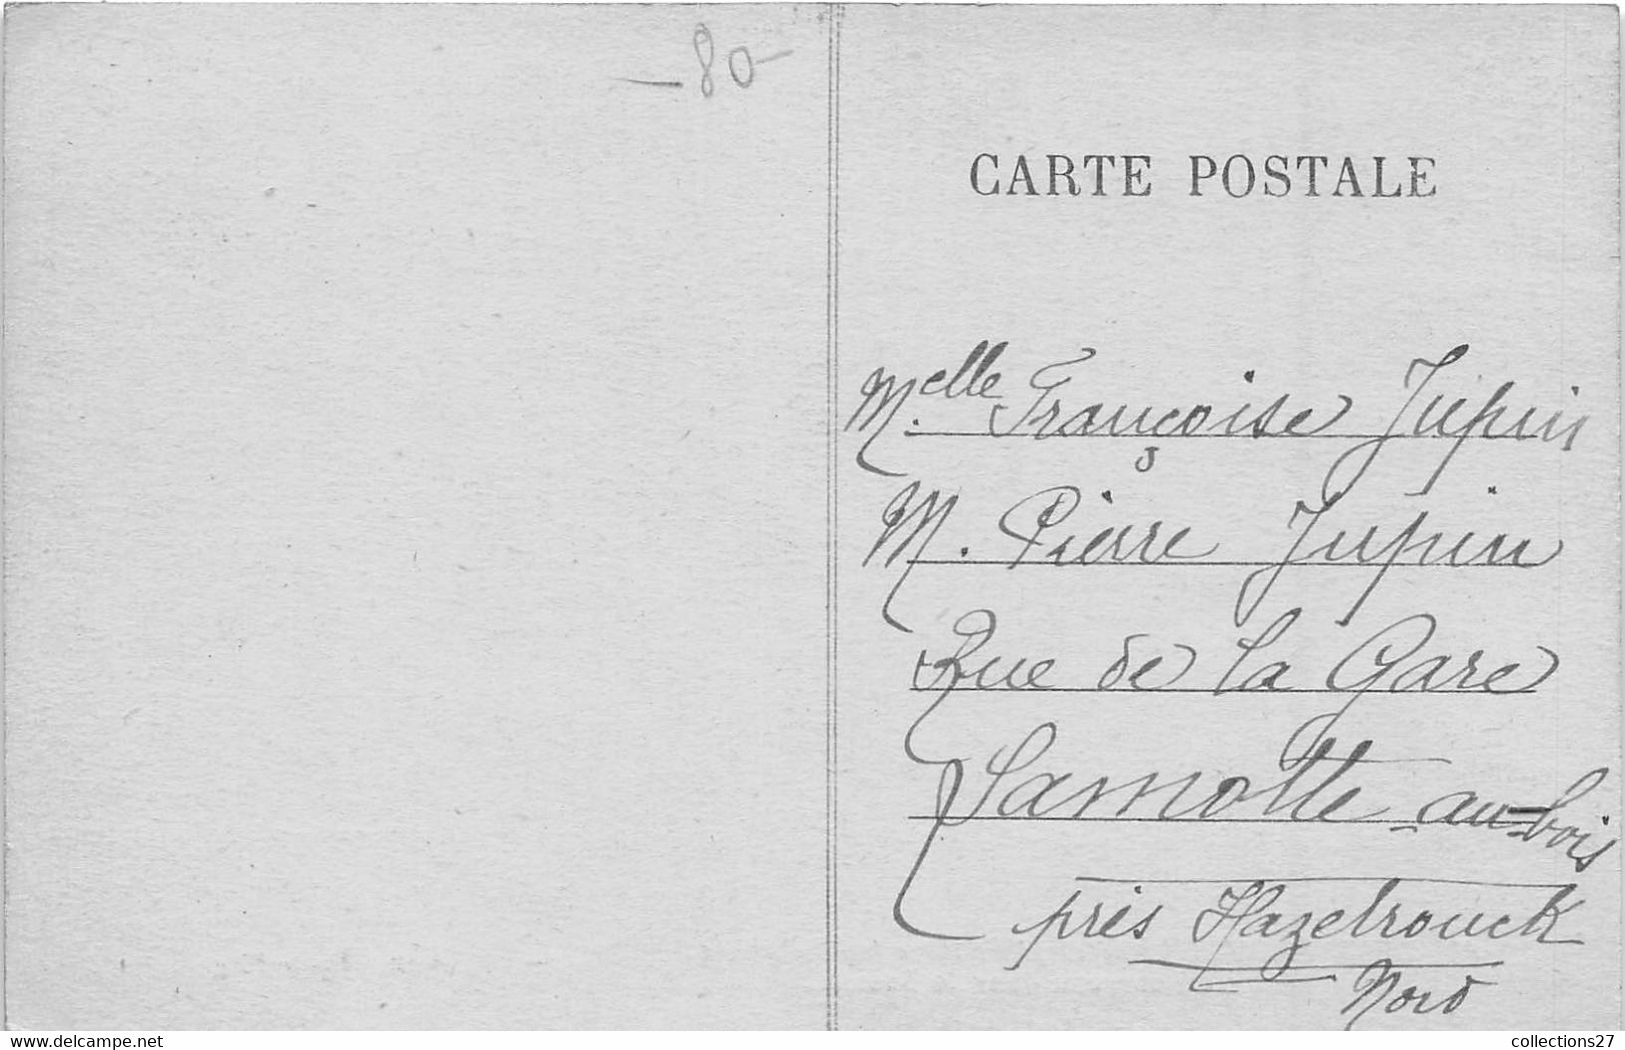 -80-
CARTE POSTALE
Melle Françoise Jupin
M. Pierre Jupin
Rue de la Gare
Lamotte-au-bois
près Hazebrouck
Nord
delcampe.net
collections27